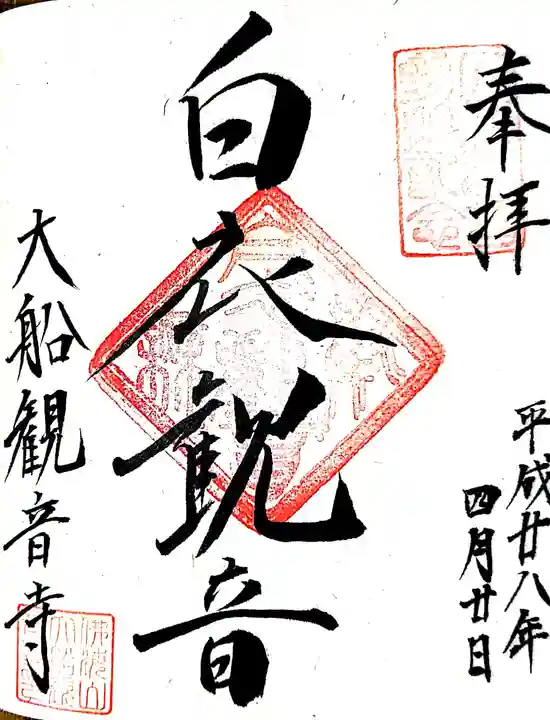 奉拝
平成廿八年
四月廿日
白衣観音
大船観音寺